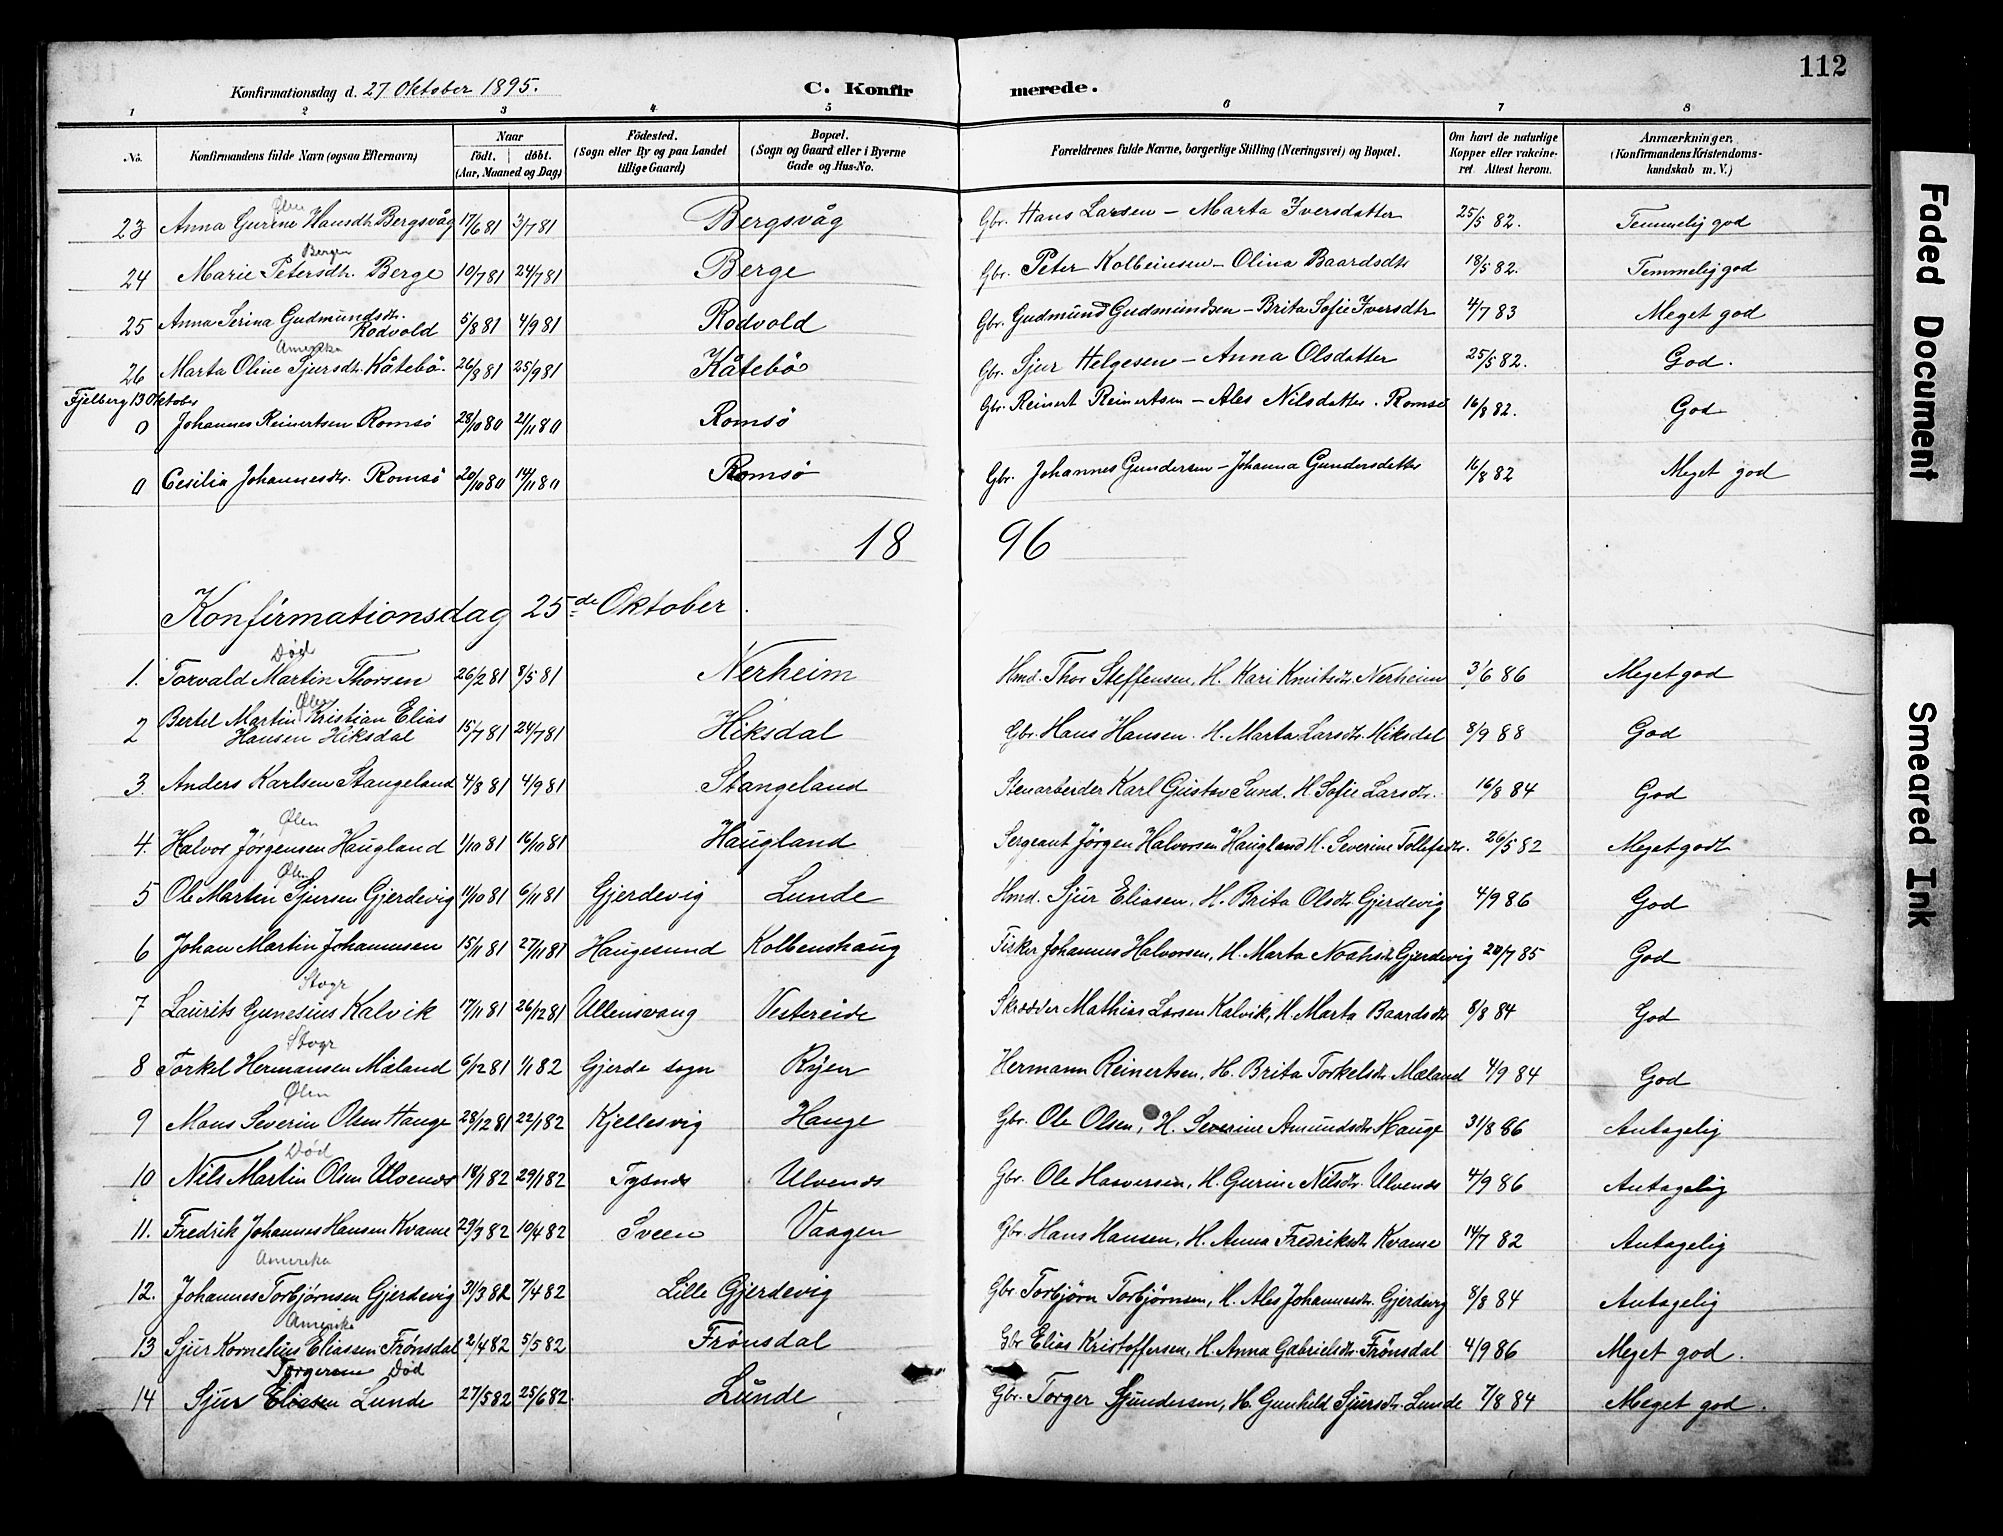 112
Konfirmationsdag d. 27 Oktober 1895.
C. Konfirmerede.
1 2 3 4 5 6 7 8
No. Konfirmandens fulde Navn (ogsaa Efternavn) Naar födt. döbt. (Aar, Maaned og Dag) Födested. (Sogn eller By og paa Landet tillige Gaard) Bopæl. (Sogn og Gaard eller i Byerne Gade og Hus-No. Forældrenes fulde Navne, borgerlige Stilling (Næringsvei) og Bopæl. Om havt de naturlige Kopper eller vakcineret Attest herom. Anmærkninger, (Konfirmandens Kristendomskundskab m. V.)
Ølen
23 Anna Gurine Hansdtr. Bergsvåg 17/6 81 3/7 81 Bergsvåg Gbr. Hans Larsen – Marta Iversdatter 25/5 82. Temmelig god
Bergen
24 Marie Petersdtr. Berge 10/7 81 24/7 81 Berge Gbr. Peter Kolbeinsen – Olina Baardsdtr 18/5 82. Temmelig god
25 Anna Serina Gudmundsdtr. Rodvold 5/8 81 4/9 81 Rodvold Gbr. Gudmund Gudmundsen – Brita Sofie Iversdtr 4/7 83 Meget god
Amerika
26 Marta Oline Sjursdtr. Kåtebö. 26/8 81 25/9 81 Kåtebö Gbr. Sjur Helgesen – Anna Olsdatter 25/5 82. God.
Fjelberg 13 Oktober
0 Johannes Reinertsen Romsö 28/10 80 21/11 80 Romsö Gbr. Reinert Reinertsen – Ales Nilsdatter. Romsö 16/8 82. God
0 Cesilia Johannesdtr. Romsö 20/10 80 14/11 80 Romsö Gbr. Johannes Gundersen – Johanna Gundersdatter 16/8 82 Meget god
18 96
Konfirmationsdag 25de Oktober.
Død
1. Torvald Martin Thorsen 26/2 81 8/5 81 Nerheim Hmd. Thor Steffensen, H. Kari Knutsdtr. Nerheim 3/6 86 Meget god
Ølen
2 Bertel Martin Kristian Elias Hansen Hiksdal 15/7 81 24/7 81 Hiksdal Gbr. Hans Hansen. H. Marta Larsdtr. Hiksdal 8/9 88 God
3. Anders Karlsen Stangeland 4/8 81 4/9 81 Stangeland Stenarbeider Karl Gustav Sund. H. Sofie Larsdtr. 16/8 84 God
Ølen
4. Halvor Jörgensen Haugland 1/10 81 16/10 81 Haugland Sergeant Jörgen Halvorsen Haugland H. Severine Tollefsdtr. 26/5 82 Meget godt
Ølen
5 Ole Martin Sjursen Gjerdevig 11/10 81 6/11 81 Gjerdevig Lunde Hmd. Sjur Eliasen, H. Brita Olsdtr Gjerdevig 4/9 86 God
6 Johan Martin Johannesen 15/11 81 27/11 81 Haugesund Kolbenshaug Fisker Johannes Halvorsen, H. Marta Noahsdtr Gjerdevig 20/7 85 God
Stogr
7 Laurits Gunelius Kalvik 17/11 81 26/12 81 Ullensvang Vestereide Skrædder Mathias Larsen Kalvik, H. Marta Baardsdtr 8/8 84 God
Stogr
8 Torkel Hermansen Mæland 6/12 81 1/1 82 Gjerde sogn Ryen Hermann Reinertsen, H. Brita Torkelsdtr Mæland 4/9 84 God
Ølen
9 Mons Severin Olsen Hauge 28/12 81 22/1 82 Kjellesvig Hauge Gbr. Ole Olsen, H. Severine Amundsdtr Hauge 31/8 86 Antagelig
Død
10 Nils Martin Olsen Ulvenes 18/1 82 29/1 82 Tysnes Ulvenes Gbr. Ole Haaversen, H. Gurine Nilsdtr. Ulvenes 4/9 86 Antagelig
11. Fredrik Johannes Hansen Kvame 29/3 82 10/4 82 Sveen Vaagen Gbr. Hans Hansen, H. Anna Fredriksdtr Kvame 14/7 82 Antagelig
Amerika
12. Johannes Torbjörnsen Gjerdevig 31/3 82 7/4 82 Lille Gjerdevig Gbr Torbjörn Torbjörnsen, H. Ales Johannesdtr. Gjerdevig 8/8 84 Antagelig
Amerika
13 Sjur Kornelius Eliassen Frönsdal 2/4 82 5/5 82 Frönsdal Gbr Elias Kristoffersen, H. Anna Gabrielsdtr. Frönsdal 4/9 86 Meget god.
Torgersen Död
14 Sjur Eliasen Lunde 27/5 82 25/6 82. Lunde Gbr. Torger Gundersen, H. Gunhild Sjursdtr. Lunde 7/8 84 Meget god.
Faded Document
Smeared Ink